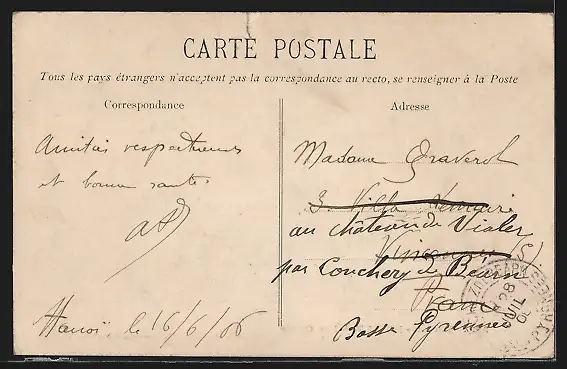 CARTE POSTALE
Tous les pays étrangers n'acceptent pas la correspondance au recto, se renseigner à la Poste
Correspondance
Amitiés respectueuses
et bonne santé.
Hanoï, le 16/6/06
Adresse
Madame Graverol
3 Villa
au château de Vialer
Vincennes
par Conchez de Béarn
France
Basses Pyrennées
28
JUIL
06